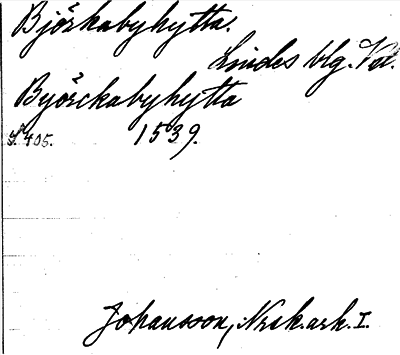 Björkabyhytta.
Lindes blg. Vstl.
Byörckabyhytta
S. 405. 1539.
Johansson, Norsk.ark. I.